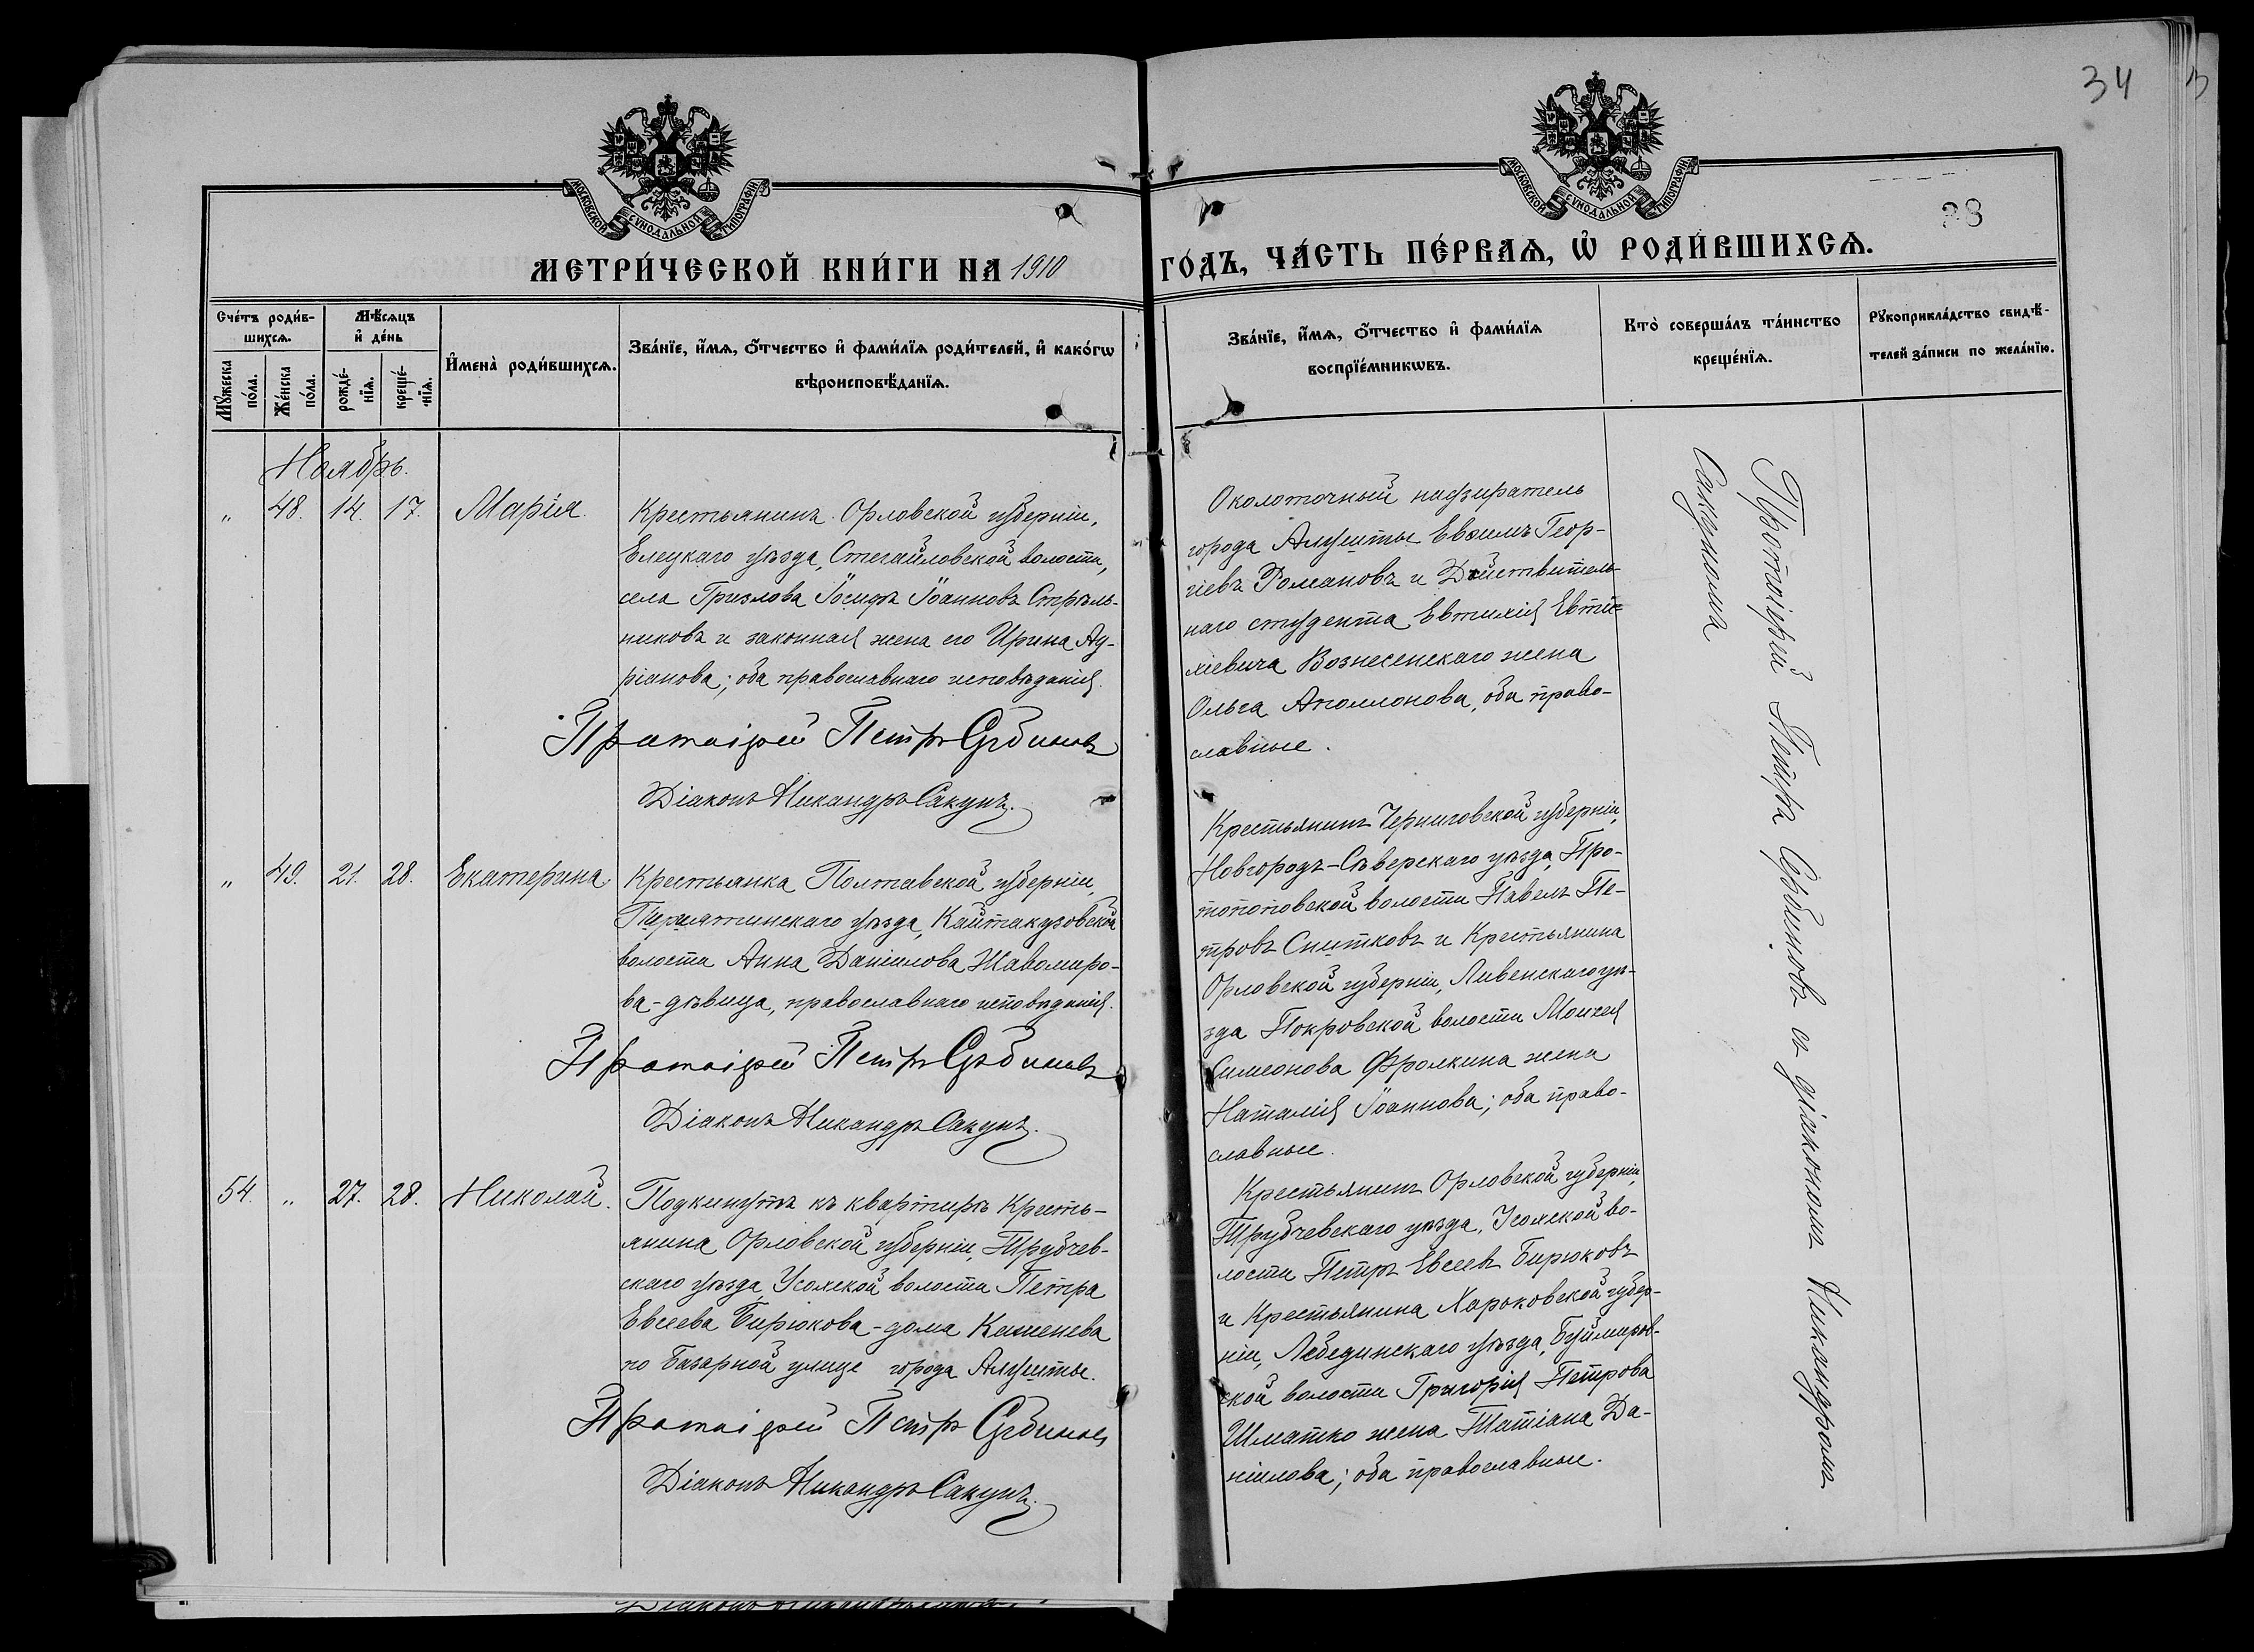 34
МОСКОВСКОЙ СУНОДАЛЬНОЙ ТИПОГРАФІИ
МОСКОВСКОЙ СУНОДАЛЬНОЙ ТИПОГРАФІИ
28
МЕТРИ́ЧЕСКОЙ КНИ́ГИ НА 1910
ГО́ДЪ, ЧА́СТЬ ПЕ́РВАѦ, Ѡ҆ РОДИ́ВШИХСѦ.
Сче́тъ роди́в-
шихсѧ.
Мѣ́сѧцъ
и҆ де́нь
Мꙋ́жеска
по́ла.
Же́нска
по́ла.
рожде́-
нїѧ.
креще́-
нїѧ.
И҆мена̀ роди́вшихсѧ.
Зва́нїе, и҆́мѧ, ѻ҆́тчество и҆ фами́лїѧ роди́телей, и҆ како́гѡ
вѣроисповѣ́данїѧ.
Зва́нїе, и҆́мѧ, ѻ҆́тчество и҆ фами́лїѧ
воспрїе́мникѡвъ.
Кто̀ соверша́лъ та́инство
креще́нїѧ.
Рꙋкоприкла́дство свидѣ́-
телей за́писи по жела́нїю.
Ноябрь.
" 48. 14. 17. Марія.
Крестьянинъ Орловской губерніи,
Елецкаго уѣзда, Стегайловской волости,
села Гризлова Іосифъ Іоанновъ Стрѣль-
никовъ и законная жена его Ирина Ад-
ріанова; оба православнаго исповѣданія.
Протоіерей Петръ Сербиновъ
Діаконъ Никандръ Сакунъ.
Околоточный надзиратель
города Алушты Евѳимъ Геор-
гіевъ Романовъ и Действитель-
наго студента Евтихія Евти-
хіевича Вознесенскаго жена
Ольга Аполлонова, оба право-
славные.
" 49. 21. 28. Екатерина.
Крестьянка Полтавской губерніи,
Пирятинскаго уѣзда, Кайтакузовской
волости Анна Даніилова Жавомиро-
ва - дѣвица, православнаго исповѣданія.
Протоіерей Петръ Сербиновъ
Діаконъ Никандръ Сакунъ.
Крестьянинъ Черниговской губерніи,
Новгородъ-Сѣверскаго уѣзда, Про-
топоповской волости Павелъ Пе-
тровъ Снитковъ и Крестьянина
Орловской губерніи, Ливенскаго уѣ-
зда Покровской волости Моисея
Симеонова Фролкина жена
Наталія Іоаннова; оба право-
славные.
54. " 27. 28. Николай.
Подкинутъ къ квартирѣ Кресть-
янина Орловской губерніи, Трубчев-
скаго уѣзда, Усожской волости Петра
Евсеева Бирюкова - дома Каменева
по Базарной улице города Алушты.
Протоіерей Петръ Сербиновъ
Діаконъ Никандръ Сакунъ.
Крестьянинъ Орловской губерніи,
Трубчевскаго уѣзда, Усожской во-
лости Петръ Евсеевъ Бирюковъ
и Крестьянина Харьковской губер-
ніи, Лебединскаго уѣзда, Буймиров-
ской волости Григорія Петрова
Шматко жена Татіана Да-
ніилова; оба православные.
Протоіерей Петръ Сербиновъ съ діакономъ Никандромъ
Сакуномъ